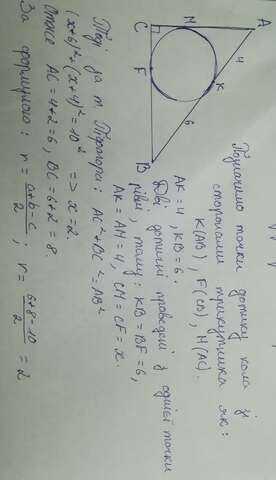 C M A
F 4
K
6
B
Позначимо точки дотику кола зі
сторонами трикутника як:
K(AB), F(CB), M(AC).
AK = 4, KB = 6.
Дві дотичні проведені з однієї точки
рівні, тому: KB = BF = 6,
AK = AM = 4, CM = CF = x.
Тоді за т. Піфагора: AC² + BC² = AB²
(x+6)² + (x+4)² = 10² => x = 2.
Отже AC = 4+2 = 6, BC = 6+2 = 8.
За формулою: r = a+b-c / 2 ; r = 6+8-10 / 2 = 2